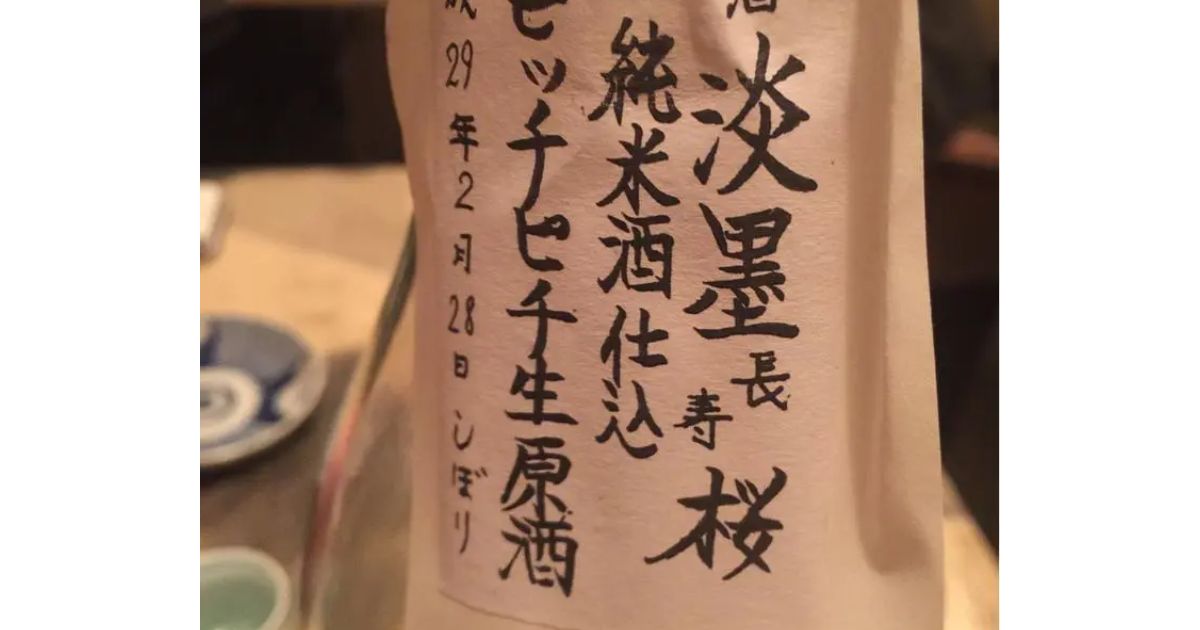 酒 淡墨長寿桜
純米酒仕込
ピッチピチ生原酒
成29年2月28日しぼり